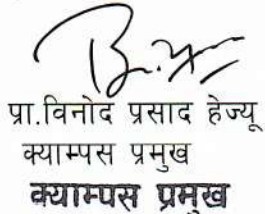 प्रा.विनोद प्रसाद हेज्यू
क्याम्पस प्रमुख
क्याम्पस प्रमुख